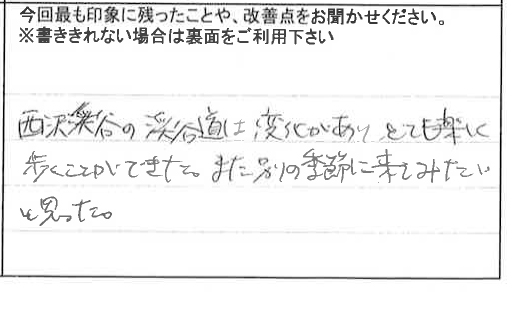 今回最も印象に残ったことや、改善点をお聞かせください。
※書ききれない場合は裏面をご利用下さい
西沢渓谷の渓谷道は変化があり とても楽しく
歩くことができた。また別の季節に来てみたい
と思った。